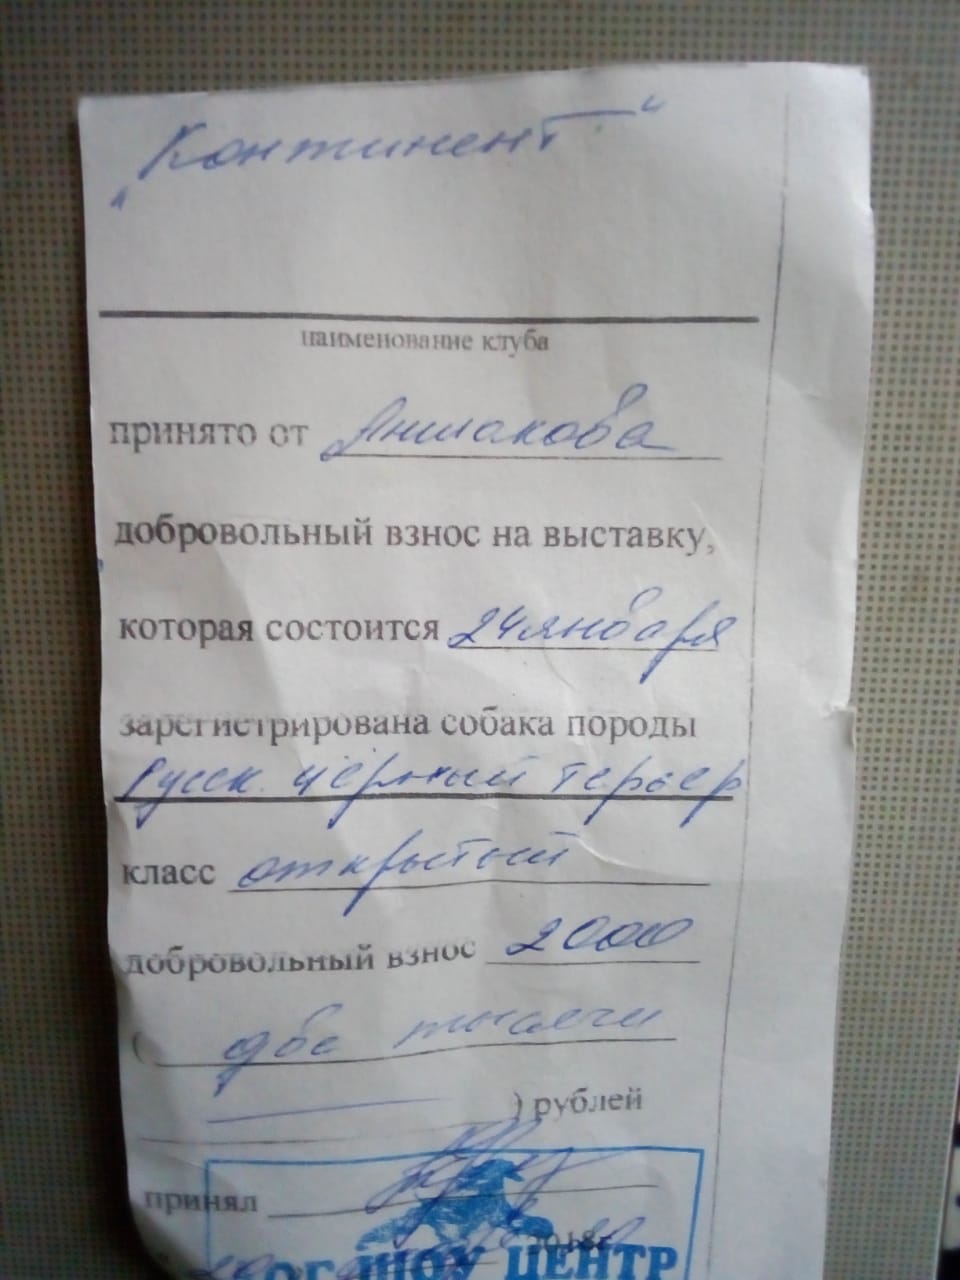 „Континент“
наименование клуба
принято от Аншакова
добровольный взнос на выставку,
которая состоится 24 января
зарегистрирована собака породы
Русск. чёрный терьер
класс открытый
добровольный взнос 2000
( две тысячи
) рублей
принял
ШОУ ЦЕНТР